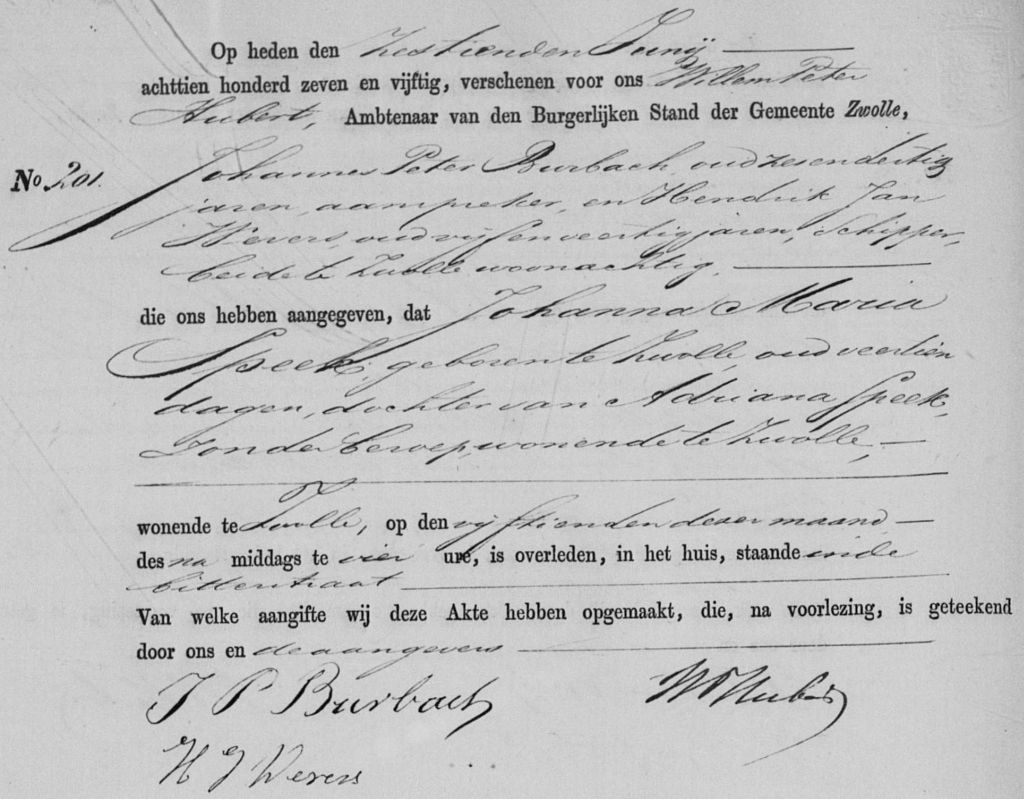 Op heden den zestienden Junij
achttien honderd zeven en vijftig, verschenen voor ons Willem Peter
Hubert, Ambtenaar van den Burgerlijken Stand der Gemeente Zwolle,
No. 201.
Johannes Peter Burbach, oud zesendertig
jaren, aanspreker, en Hendrik Jan
Wevers, oud vijfenveertig jaren, Schipper,
beide te Zwolle woonachtig,
die ons hebben aangegeven, dat Johanna Maria
Speek, geboren te Zwolle, oud veertien
dagen, dochter van Adriana Speek,
zonder beroep, wonende te Zwolle,
wonende te Zwolle, op den vijftienden dezer maand
des na middags te vier ure, is overleden, in het huis, staande in de
bitterstraat
Van welke aangifte wij deze Akte hebben opgemaakt, die, na voorlezing, is geteekend
door ons en de aangevers
J P Burbach
WPHubert
H J Wevers